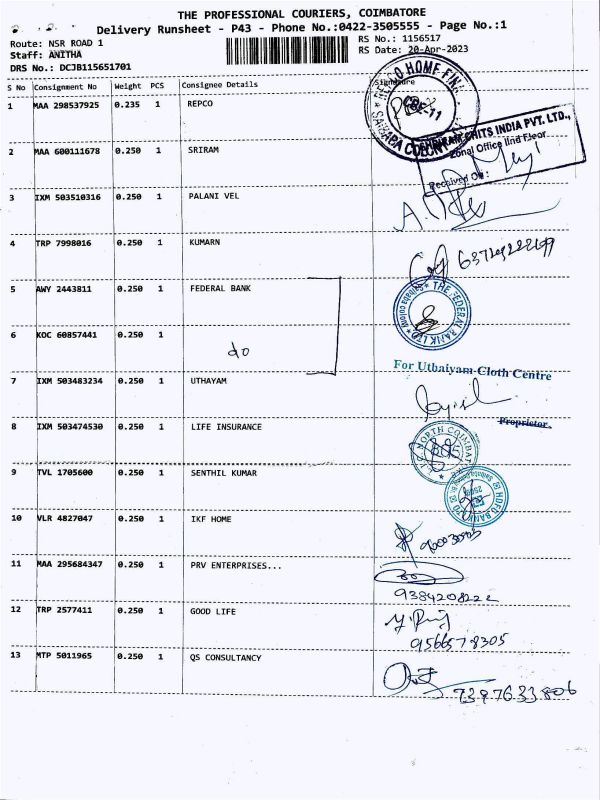 THE PROFESSIONAL COURIERS, COIMBATORE
Delivery Runsheet - P43 - Phone No.:0422-3505555 - Page No.:1
Route: NSR ROAD 1
RS No.: 1156517
Staff: ANITHA
RS Date: 20-Apr-2023
DRS No.: DCJB115651701
S No Consignment No Weight PCS Consignee Details Signature
1 MAA 298537925 0.235 1 REPCO
REPCO HOME FIN
SAIBABA COLONY
CBE-11
2 MAA 600111678 0.250 1 SRIRAM
CHITS INDIA PVT. LTD.,
Zonal Office IInd Floor
Received On:
3 IXM 503510316 0.250 1 PALANI VEL
4 TRP 7998016 0.250 1 KUMARN
5 AWY 2443811 0.250 1 FEDERAL BANK
THE FEDERAL BANK LTD
6 KOC 60857441 0.250 1
do
For Uthaiyam Cloth Centre
7 IXM 503483234 0.250 1 UTHAYAM
Proprietor.
8 IXM 503474530 0.250 1 LIFE INSURANCE
NORTH COIMBAT
9 TVL 1705600 0.250 1 SENTHIL KUMAR
HDFC BANK LTD
10 VLR 4827047 0.250 1 IKF HOME
11 MAA 295684347 0.250 1 PRV ENTERPRISES...
9384208222
12 TRP 2577411 0.250 1 GOOD LIFE
9566578305
13 MTP 5011965 0.250 1 QS CONSULTANCY
7397633806